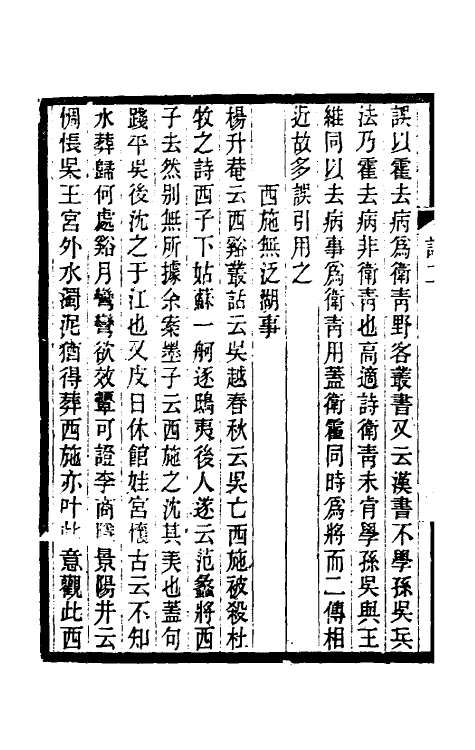 誤以霍去病爲衛青野客叢書又云漢書不學孫吳兵
法乃霍去病非衛青也高適詩衛青未肯學孫吳與王
維同以去病事爲衛青用蓋衛霍同時爲將而二傳相
近故多誤引用之
西施無泛湖事
楊升菴云西谿叢話云吳越春秋云吳亡西施被殺杜
牧之詩西子下姑蘇一舸逐鴟夷後人遂云范蠡將西
子去然别無所據余案墨子云西施之沈其美也蓋句
踐平吳後沈之于江也又皮日休館娃宮懷古云不知
水葬歸何處谿月彎彎欲效顰可證李商隱景陽井云
惆悵吳王宮外水濁泥猶得葬西施亦叶此意觀此西